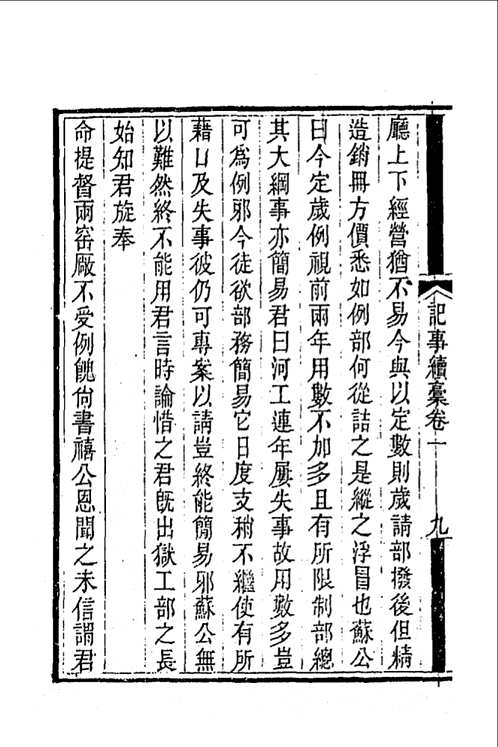 記事續稾卷一
九
廳上下經營猶不易今與以定數則歲請部撥後但精
造銷冊方價悉如例部何從詰之是縱之浮冒也蘇公
曰今定歲例視前兩年用數不加多且有所限制部總
其大綱事亦簡易君曰河工連年屢失事故用數多豈
可為例邪今徒欲部務簡易它日度支稍不繼使有所
藉口及失事彼仍可專案以請豈終能簡易邪蘇公無
以難然終不能用君言時論惜之君旣出獄工部之長
始知君旋奉
命提督兩窑厰不受例餽尙書禧公恩聞之未信謂君